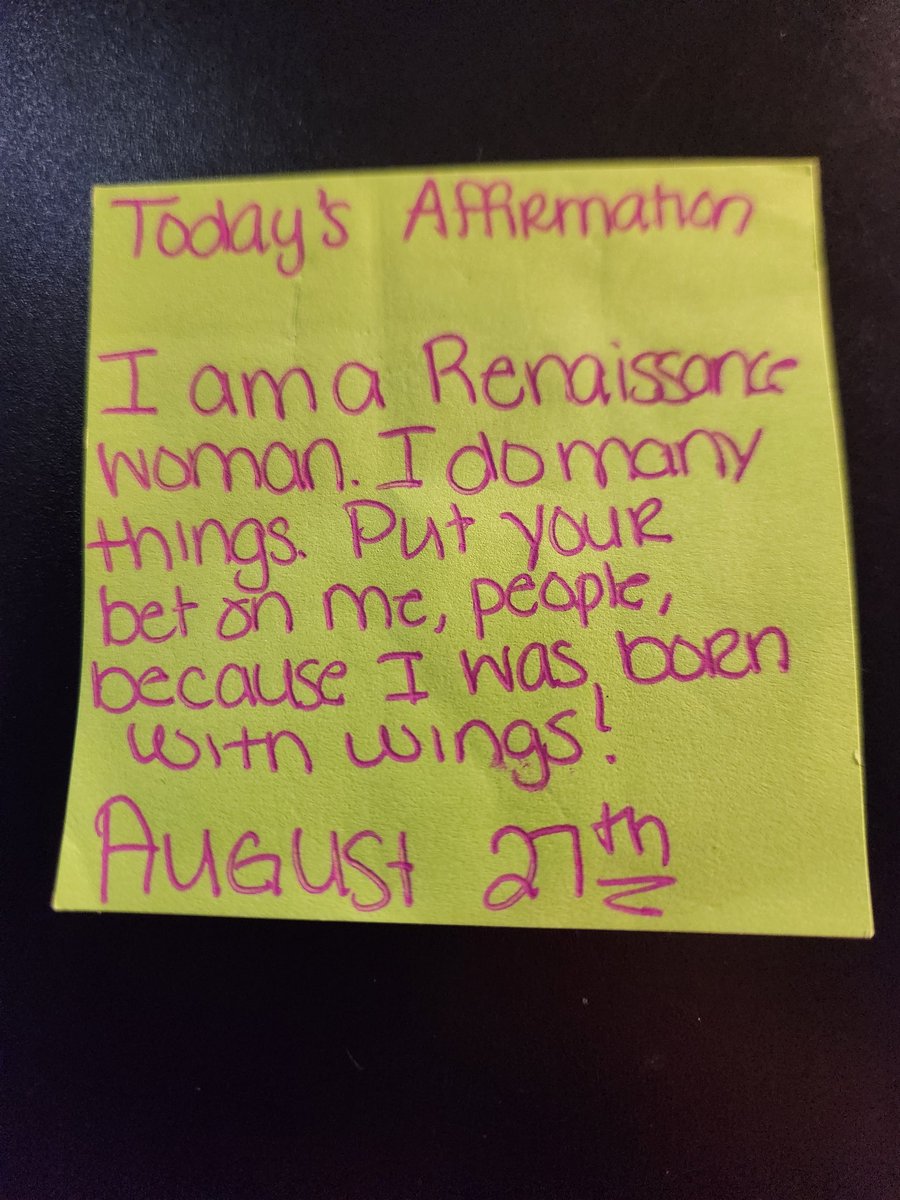 Today's Affirmation
I am a Renaissance
woman. I do many
things. Put your
bet on me, people,
because I was born
with wings!
August 27th